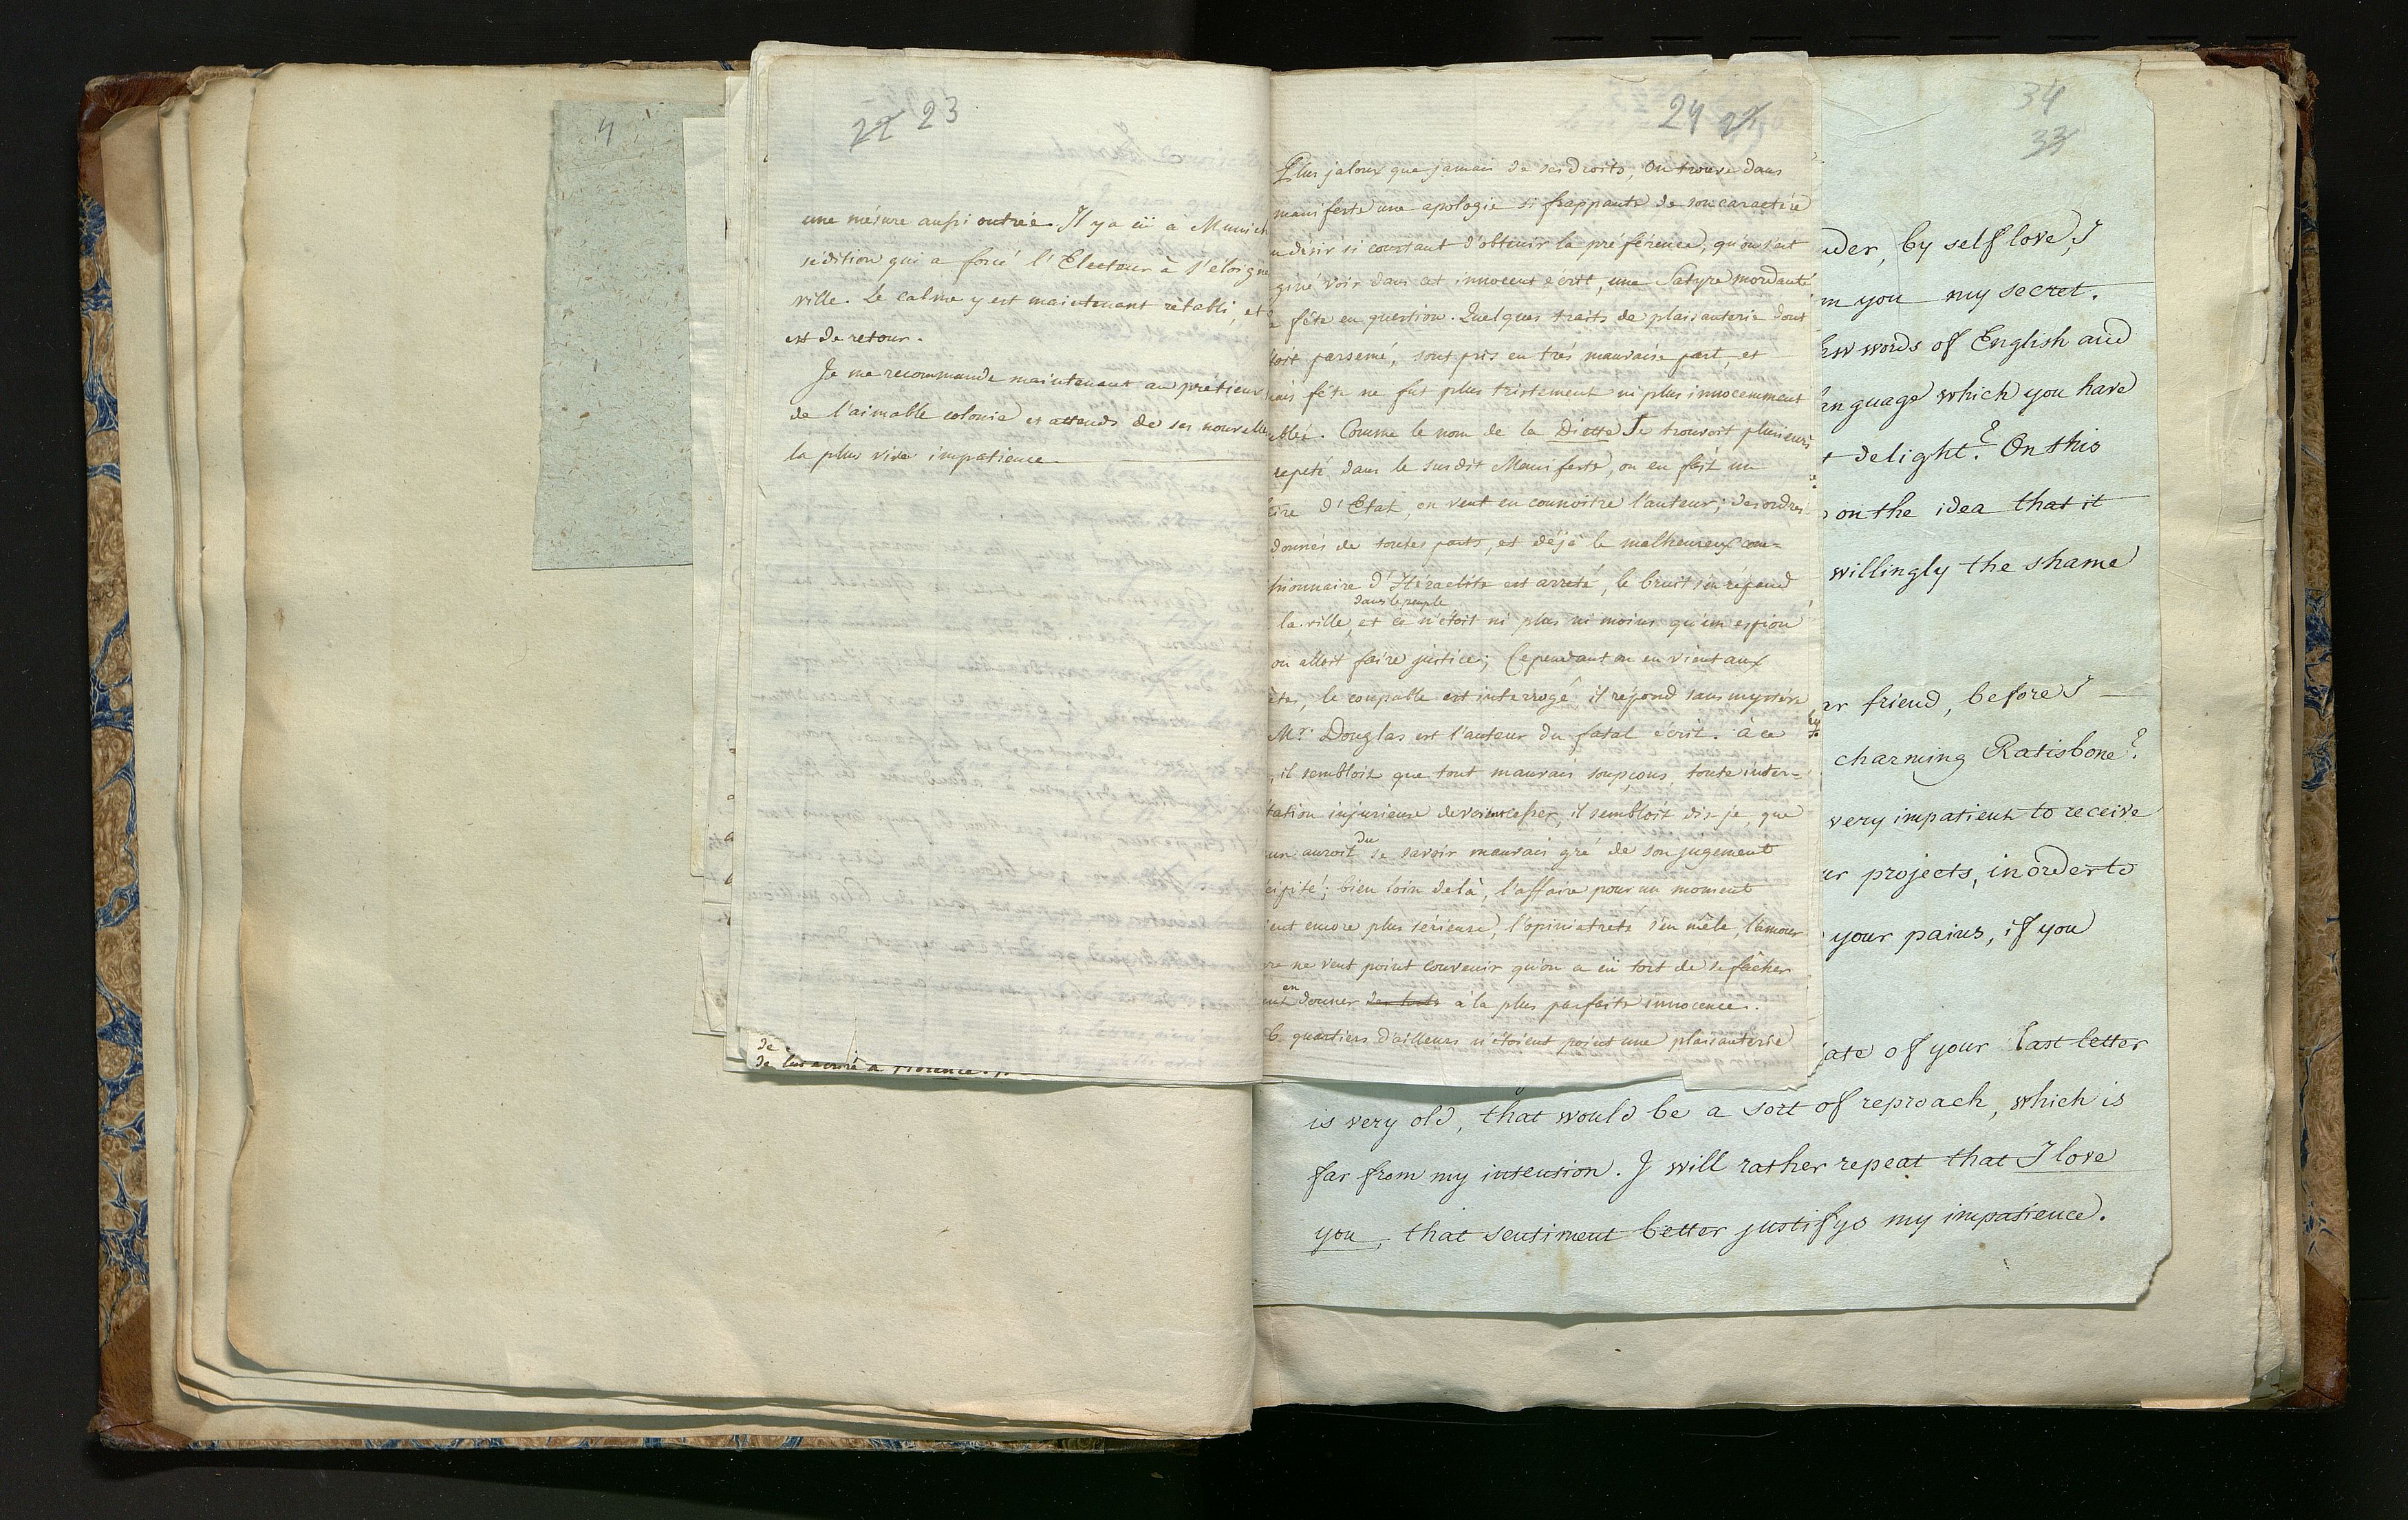 4
22 23
une mésure aussi outrée. Il y a eü à Munich
sédition qui a forcé l'Electeur à s'éloigne
ville. Le calme y est maintenant rétabli, et
est de retour.
Je me recommande maintenant au pretieux
de l'aimable colonie et attends de ses nouvelle
la plus vive impatience.
de
de
24
Plus jaloux que jamais de ses droits, on trouve dans
manifeste une apologie si frappante de son caractère
desir si constant d'obtenir la préférence, qu'on s'est
giné voir dans cet innocent écrit, une Satyre mordante
fête en question. Quelques traits de plaisanterie dont
toit parsemé, sont pris en très mauvaise part, et
ais fête ne fut plus tristement ni plus innocemment
blée. Comme le nom de la Diette se trouvoit plusieurs
repeté dans le susdit Manifeste, on en fait un
ire d'Etat, on veut en connoitre l'auteur; des ordres
donnés de toutes parts, et déjà le malheureux com-
sionnaire d'Héraclite est arreté, le bruit s'en répand
dans le peuple
la ville, et ce n'étoit ni plus ni moins qu'un espion
on alloit faire justice; Cependant on en vient aux
êtes, le coupable est interrogé il répond sans mystère
Mr. Douglas est l'auteur du fatal écrit. à ce
, il sembloit que tout mauvais soupçons, toute inter-
tation injurieuse devoient cesser, il sembloit dis-je, que
du
un auroit se savoir mauvais gré de son jugement
cipité; bien loin delà, l'affaire pour un moment
ient encore plus sérieuse, l'opiniatreté s'en mêle, l'amour
re ne veut point convenir qu'on a eü tort de se fâcher
en
eut donner des torts à la plus parfaite innocence.
6 quartiers d'ailleurs n'étoient point une plaisanterie
34
33
nder, by self love, I
m you my secret.
ew words of English and
anguage which you have
t delight? On this
on the idea that it
willingly the shame
ar friend, before I
charming Ratisbone?
very impatient to receive
ur projects, in order to
your pains, if you
ate of your last letter
is very old, that would be a sort of reproach, which is
far from my intension. I will rather repeat that I love
you, that sentiment better justifys my impatience.